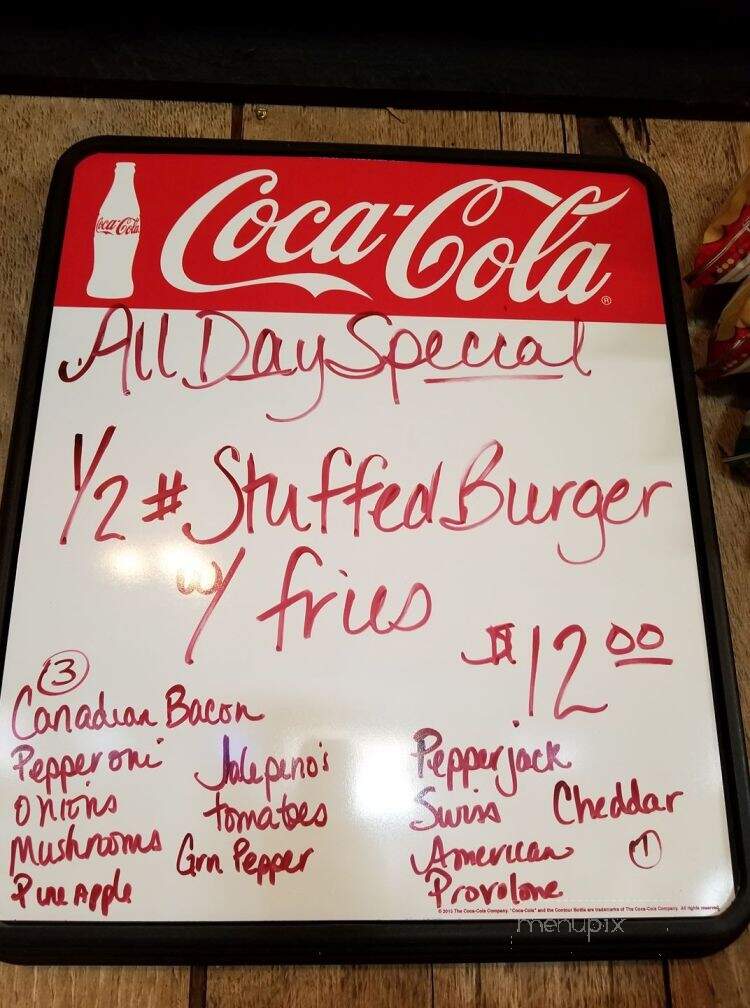 Coca-Cola
Coca-Cola®
All Day Special
1/2 # Stuffed Burger
w/ fries
$12 00
3
Canadian Bacon
Pepperoni Jalepeno's
Onions tomatoes
Mushrooms Grn Pepper
PineApple
Pepperjack
Swiss Cheddar
American 1
Provolone
© 2015 The Coca-Cola Company. "Coca-Cola" and the Contour Bottle are trademarks of The Coca-Cola Company. All rights reserved.
menupix